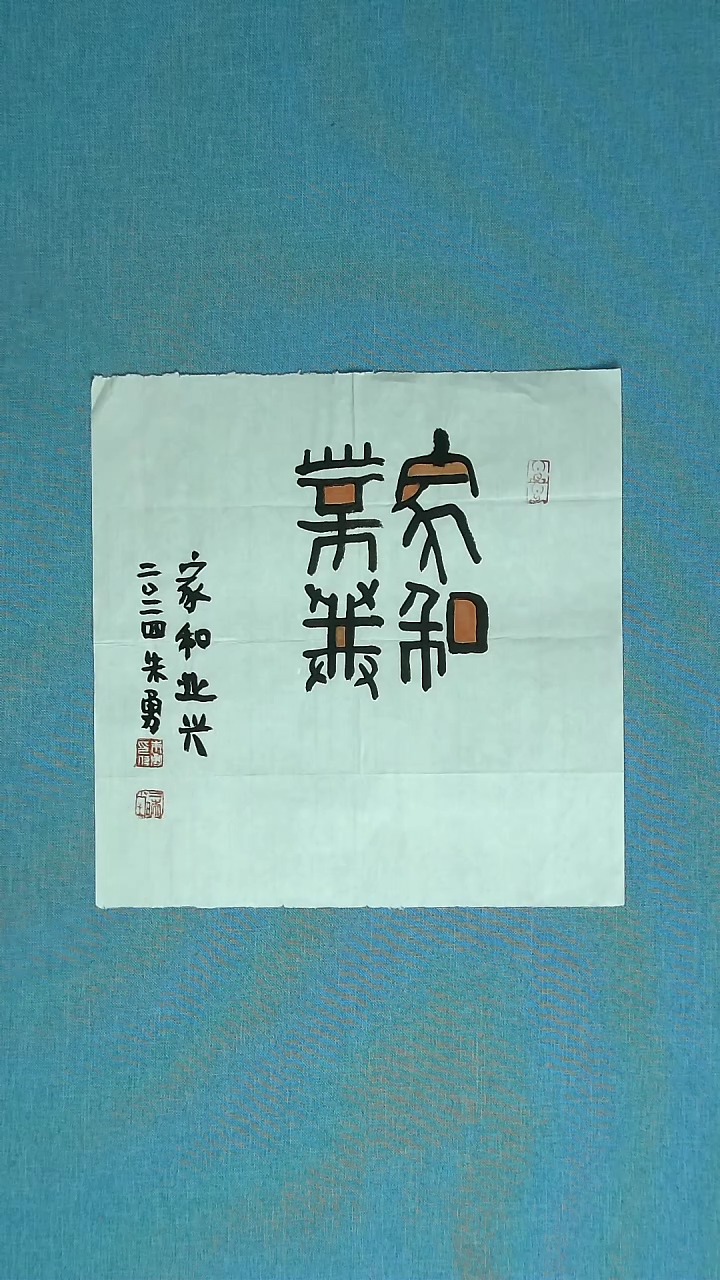 家和
業興
家和业兴
二〇二四朱勇